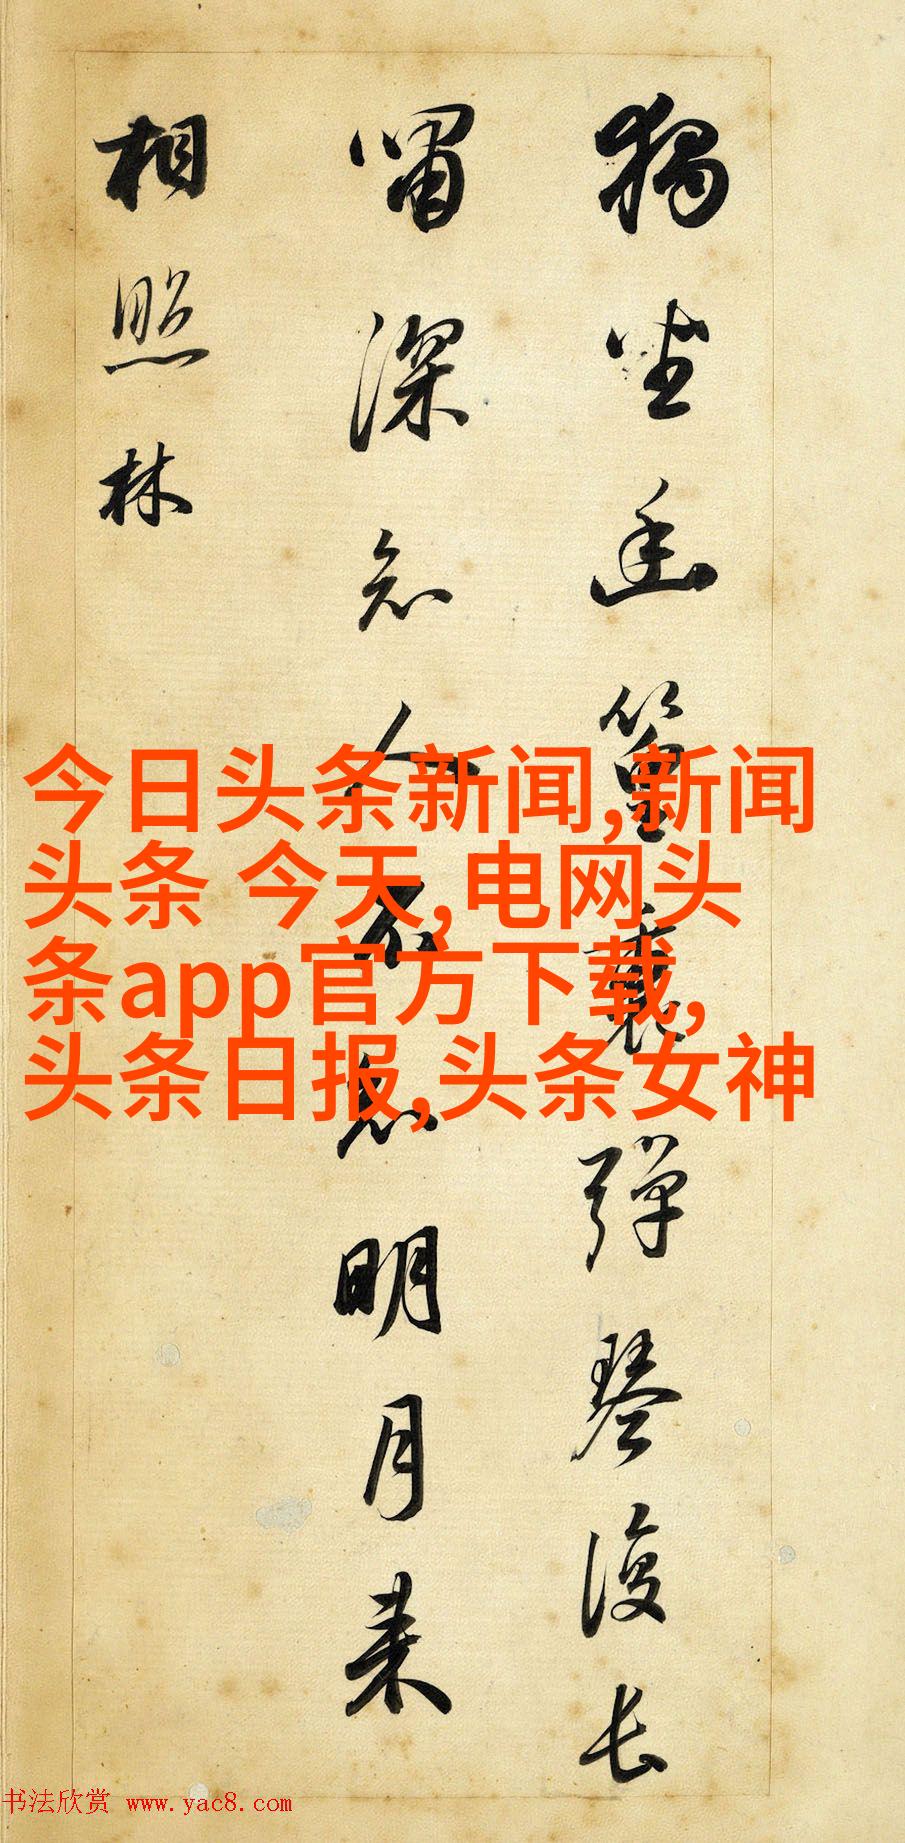 獨坐幽篁裏彈琴復長
嘯深知人不知明月来
相照林
今日头条新闻,新闻
头条 今天,电网头
条app官方下载,
头条日报,头条女神
书法欣赏 www.yac8.com